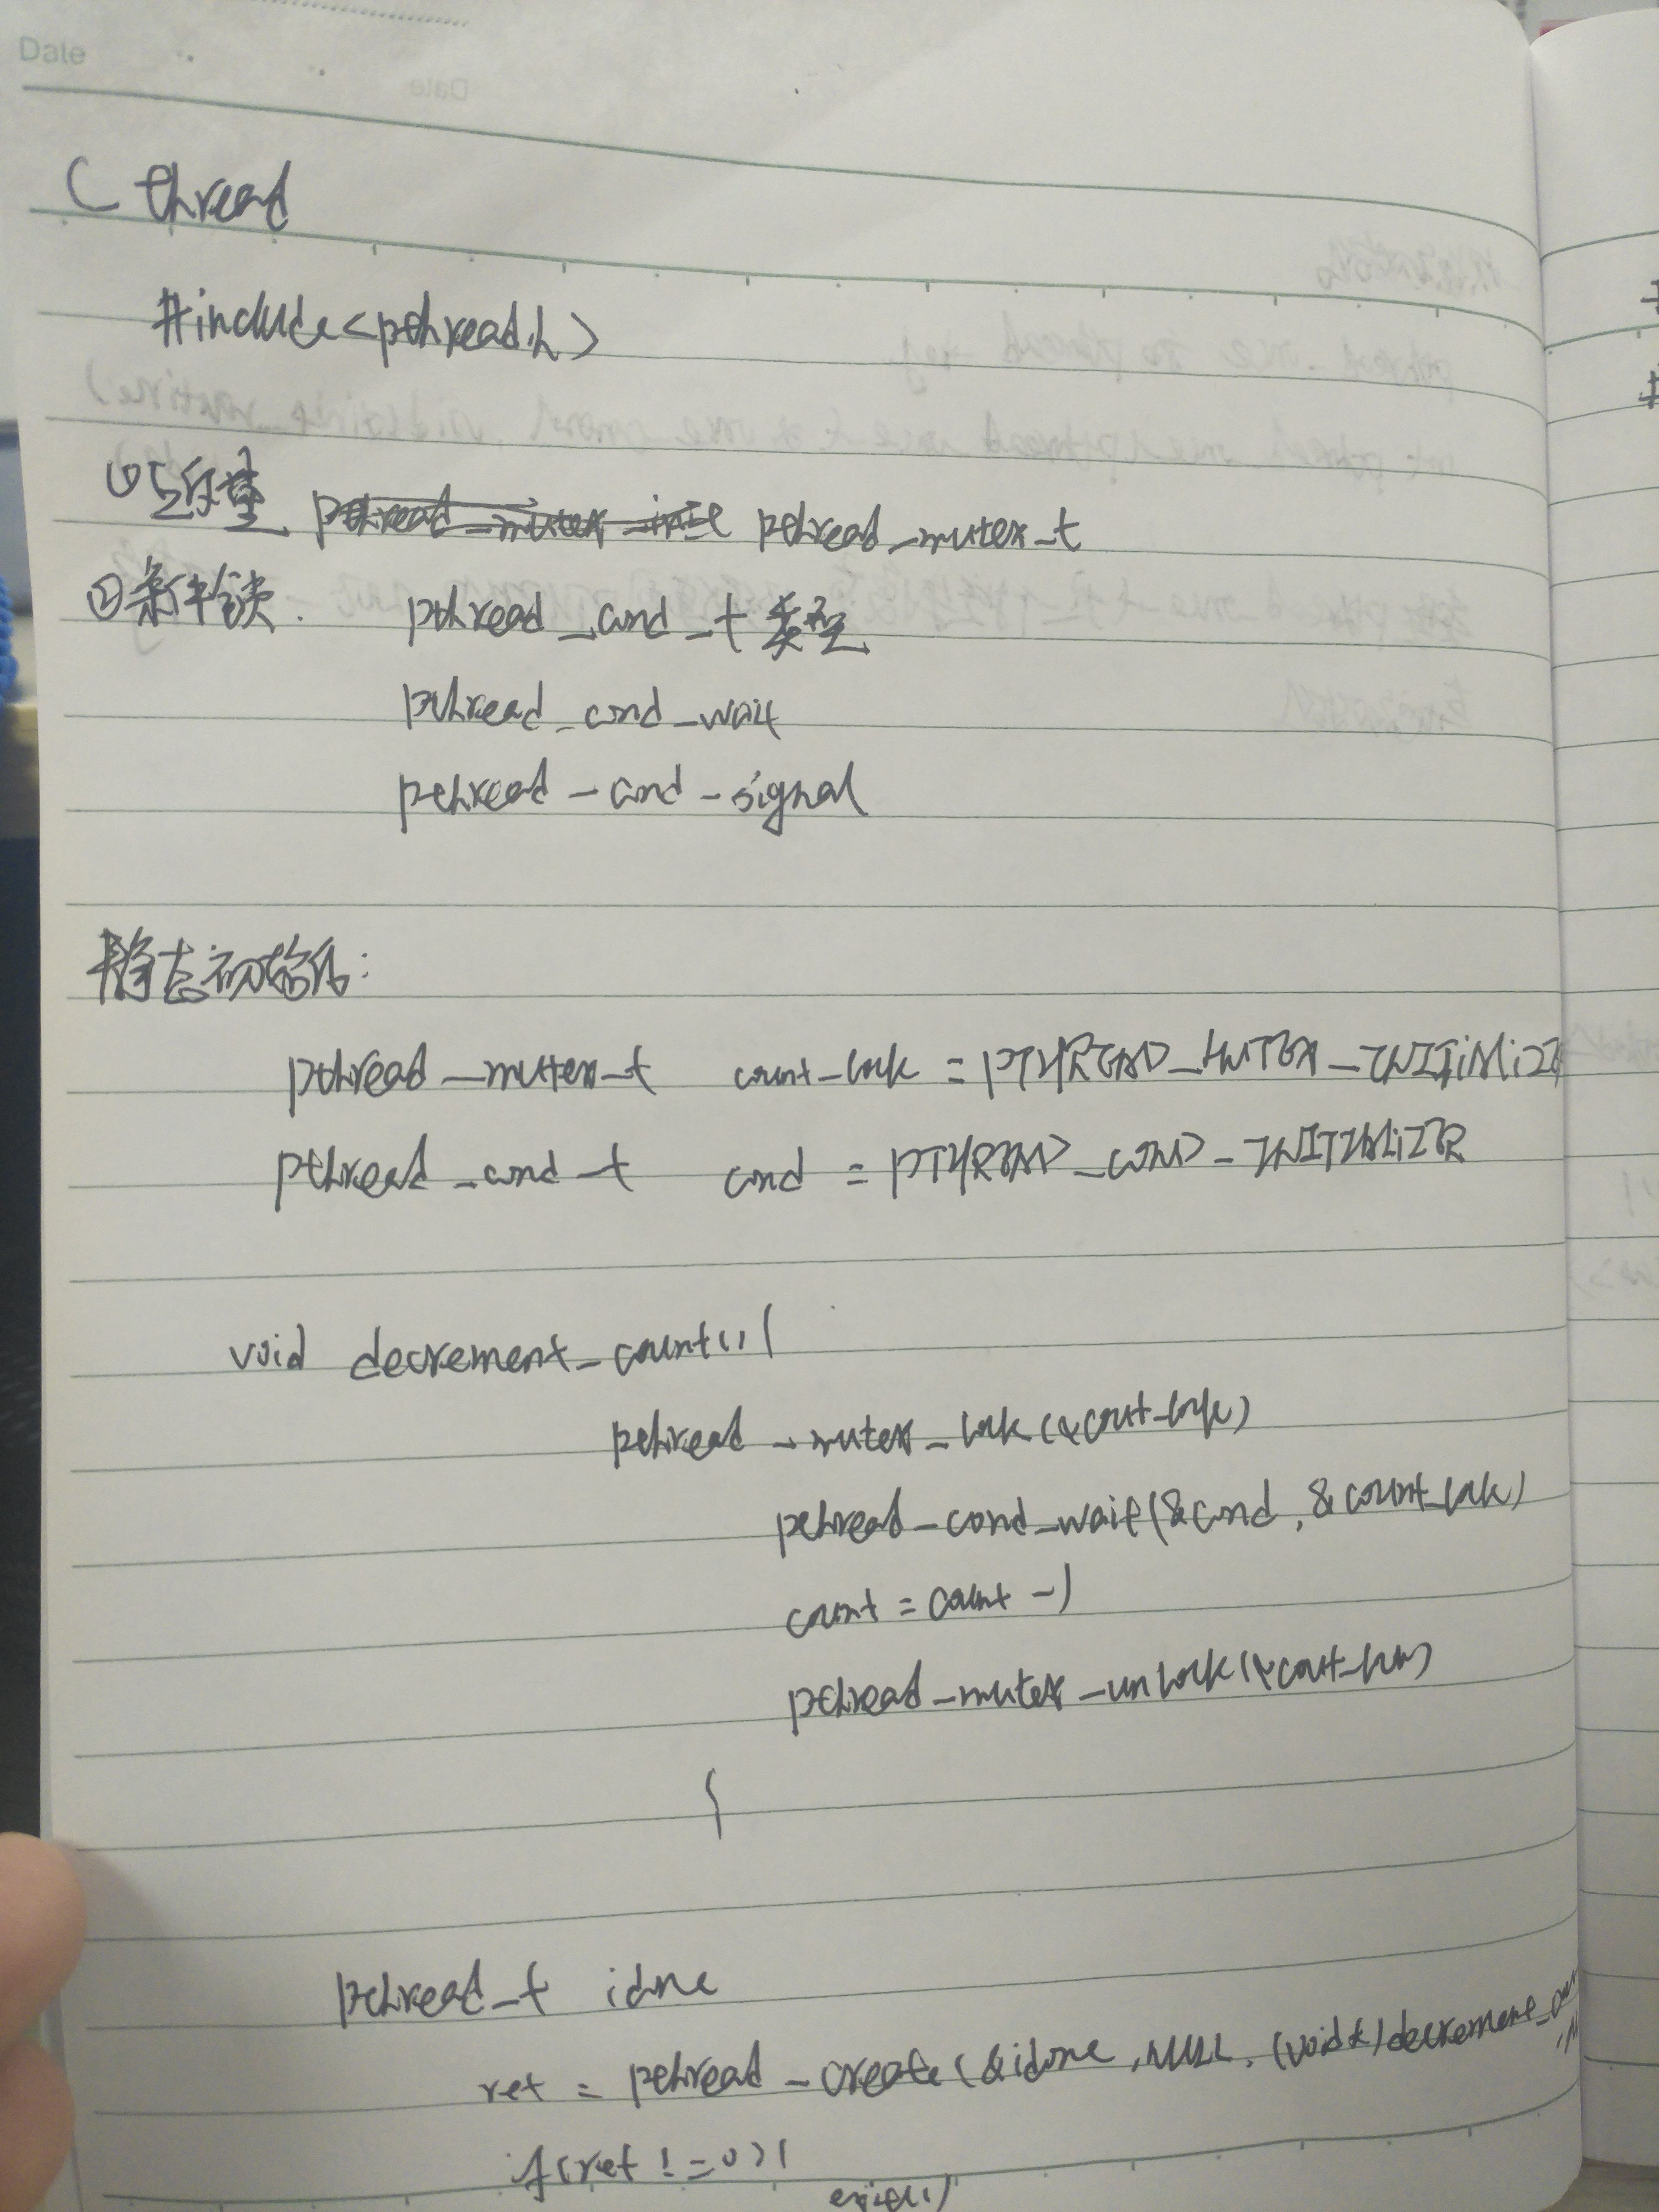 Date
C thread
#include<pthread.h>
① 互斥量 pthread_mutex_init pthread_mutex_t
② 条件锁. pthread_cond_t 类型
pthread_cond_wait
pthread_cond_signal
静态初始化:
pthread_mutex_t count_lock = PTHREAD_MUTEX_INITIALIZE
pthread_cond_t cond = PTHREAD_COND_INITIALIZER
void decrement_count() {
pthread_mutex_lock (&count_lock)
pthread_cond_wait(&cond, &count_lock)
count = count -1
pthread_mutex_unlock (&count_lock)
}
pthread_t idone
ret = pthread_create (&idone, NULL, (void*)decrement_
if (ret != 0) {